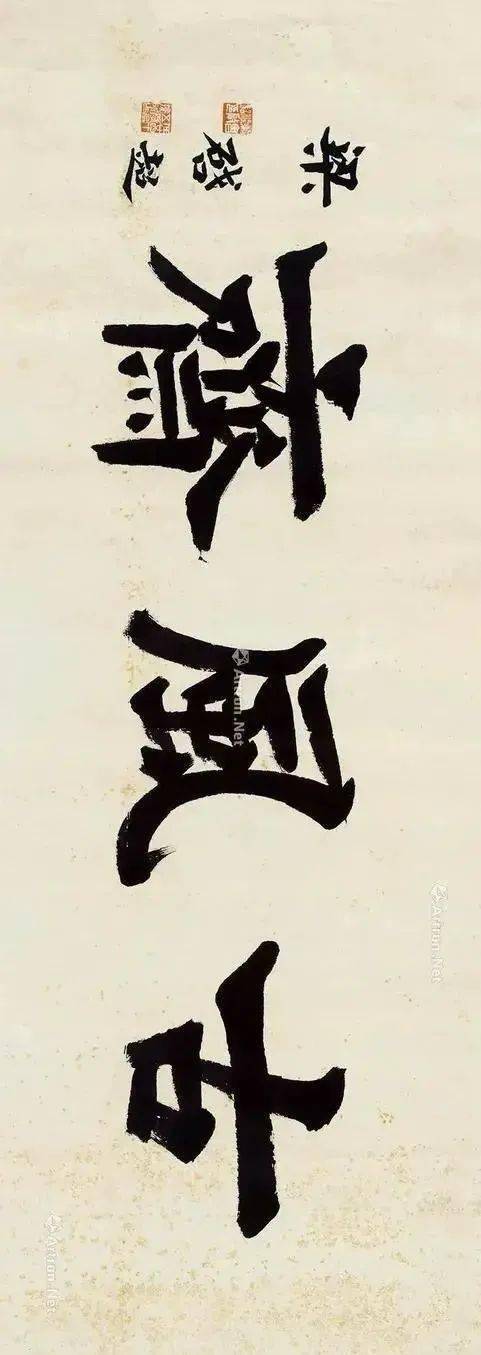 古風齋
梁啟超
Artron.Net
Artron.Net
Artron.Net